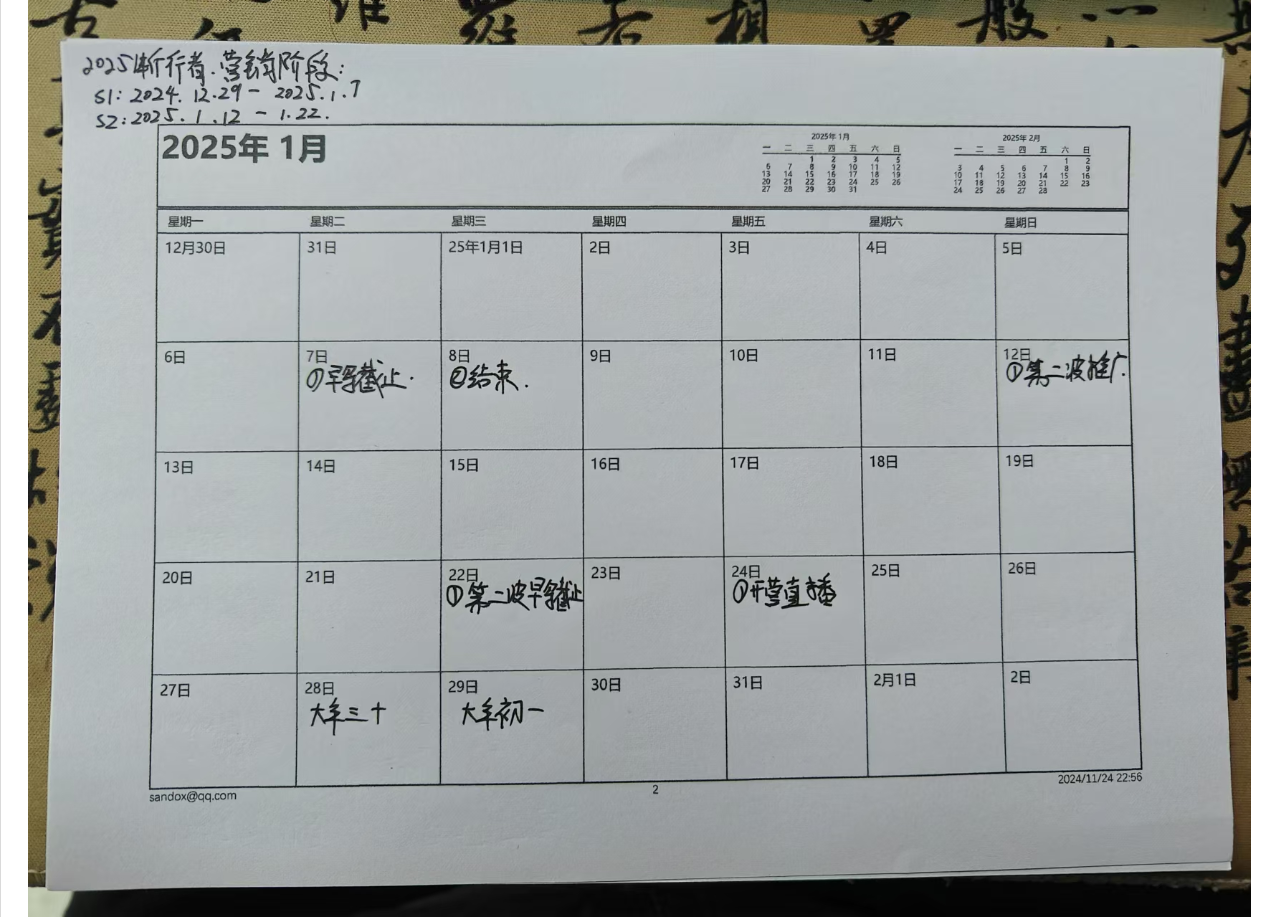 2025渐行者.营销阶段:
S1: 2024.12.29 - 2025.1.7
S2: 2025.1.12 - 1.22.
2025年 1月
2025年 1月
一 二 三 四 五 六 日
1 2 3 4 5
6 7 8 9 10 11 12
13 14 15 16 17 18 19
20 21 22 23 24 25 26
27 28 29 30 31
2025年 2月
一 二 三 四 五 六 日
1 2
3 4 5 6 7 8 9
10 11 12 13 14 15 16
17 18 19 20 21 22 23
24 25 26 27 28
星期一 星期二 星期三 星期四 星期五 星期六 星期日
12月30日 31日 25年1月1日 2日 3日 4日 5日
6日 7日 8日 9日 10日 11日 12日
①早鸟截止. ②结束. ①第二波推广.
13日 14日 15日 16日 17日 18日 19日
20日 21日 22日 23日 24日 25日 26日
①第二波早鸟截止 ①开营直播
27日 28日 29日 30日 31日 2月1日 2日
大年三十 大年初一
sandox@qq.com 2 2024/11/24 22:56